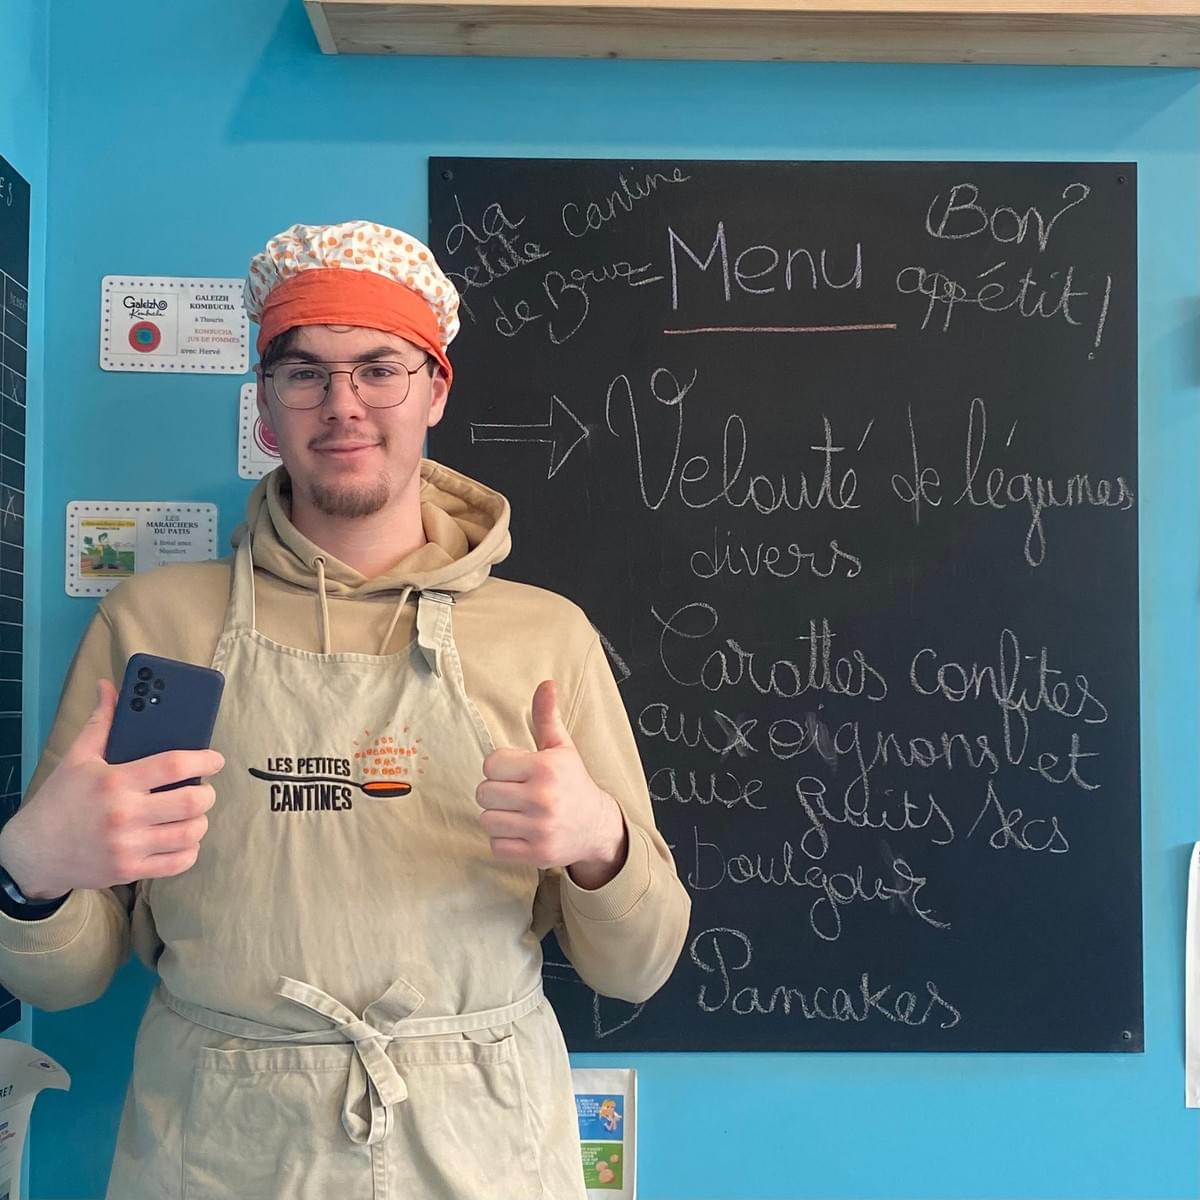 La
petite cantine
de Bruz
Menu
Bon
appétit !
Velouté de légumes
divers
Carottes confites
aux oignons et
aux fruits secs
boulgour
Pancakes
Galeizh
Kombucha
GALEIZH
KOMBUCHA
à Thourie
KOMBUCHA
JUS DE POMMES
avec Hervé
LES
MARAICHERS
DU PATIS
à Bréal sous
Montfort
LES PETITES
CANTINES